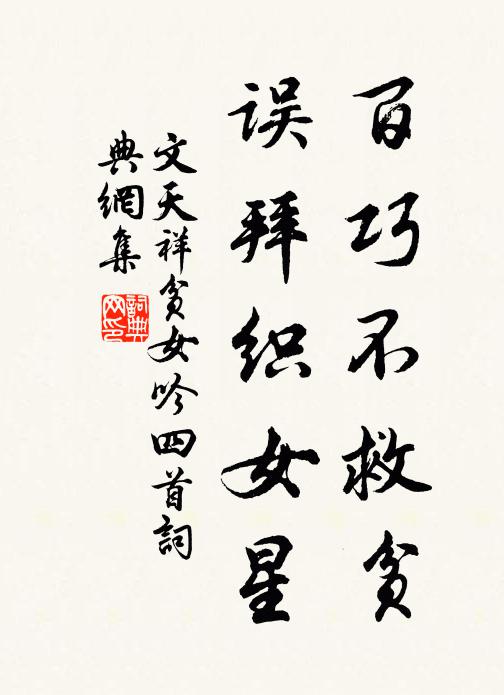 百巧不救贫
误拜织女星
文天祥贫女吟四首詞
典網集
詞典
网印